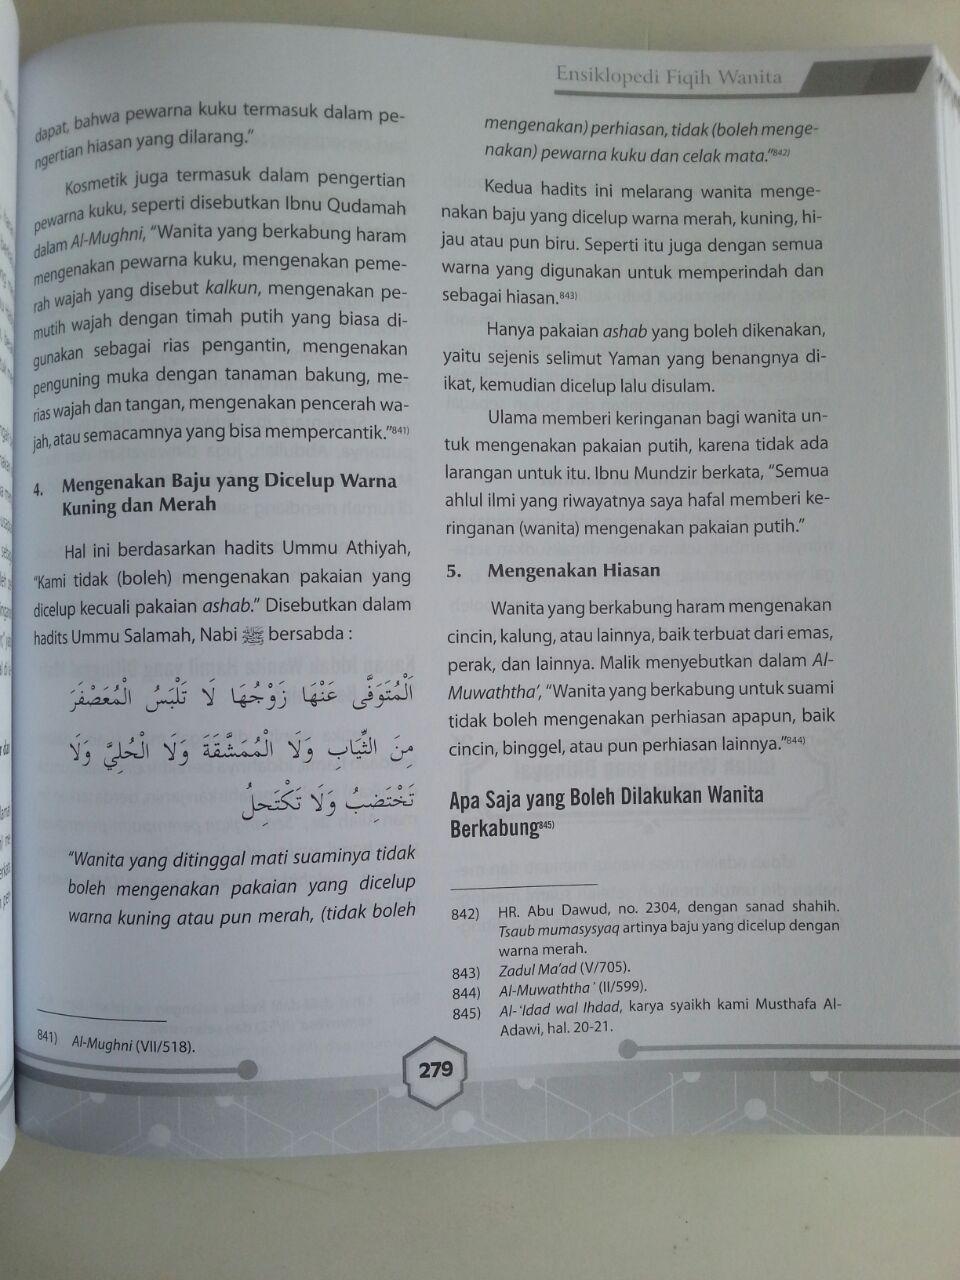 Ensiklopedi Fiqih Wanita
dapat, bahwa pewarna kuku termasuk dalam pe-
ngertian hiasan yang dilarang.”
Kosmetik juga termasuk dalam pengertian
pewarna kuku, seperti disebutkan Ibnu Qudamah
dalam Al-Mughni, “Wanita yang berkabung haram
mengenakan pewarna kuku, mengenakan peme-
rah wajah yang disebut kalkun, mengenakan pe-
mutih wajah dengan timah putih yang biasa di-
gunakan sebagai rias pengantin, mengenakan
penguning muka dengan tanaman bakung, me-
rias wajah dan tangan, mengenakan pencerah wa-
jah, atau semacamnya yang bisa mempercantik.”841)
4. Mengenakan Baju yang Dicelup Warna
Kuning dan Merah
Hal ini berdasarkan hadits Ummu Athiyah,
“Kami tidak (boleh) mengenakan pakaian yang
dicelup kecuali pakaian ashab.” Disebutkan dalam
hadits Ummu Salamah, Nabi ﷺ bersabda :
اَلْمُتَوَفَّى عَنْهَا زَوْجُهَا لَا تَلْبَسُ الْمُعَصْفَرَ
مِنَ الثِّيَابِ وَلَا الْمُمَشَّقَةَ وَلَا الْحُلِيَّ وَلَا
تَخْتَضِبُ وَلَا تَكْتَحِلُ
“Wanita yang ditinggal mati suaminya tidak
boleh mengenakan pakaian yang dicelup
warna kuning atau pun merah, (tidak boleh
841) Al-Mughni (VII/518).
mengenakan) perhiasan, tidak (boleh menge-
nakan) pewarna kuku dan celak mata.”842)
Kedua hadits ini melarang wanita menge-
nakan baju yang dicelup warna merah, kuning, hi-
jau atau pun biru. Seperti itu juga dengan semua
warna yang digunakan untuk memperindah dan
sebagai hiasan.843)
Hanya pakaian ashab yang boleh dikenakan,
yaitu sejenis selimut Yaman yang benangnya di-
ikat, kemudian dicelup lalu disulam.
Ulama memberi keringanan bagi wanita un-
tuk mengenakan pakaian putih, karena tidak ada
larangan untuk itu. Ibnu Mundzir berkata, “Semua
ahlul ilmi yang riwayatnya saya hafal memberi ke-
ringanan (wanita) mengenakan pakaian putih.”
5. Mengenakan Hiasan
Wanita yang berkabung haram mengenakan
cincin, kalung, atau lainnya, baik terbuat dari emas,
perak, dan lainnya. Malik menyebutkan dalam Al-
Muwaththa’, “Wanita yang berkabung untuk suami
tidak boleh mengenakan perhiasan apapun, baik
cincin, binggel, atau pun perhiasan lainnya.”844)
Apa Saja yang Boleh Dilakukan Wanita
Berkabung845)
842) HR. Abu Dawud, no. 2304, dengan sanad shahih.
Tsaub mumasysyaq artinya baju yang dicelup dengan
warna merah.
843) Zadul Ma’ad (V/705).
844) Al-Muwaththa’ (II/599).
845) Al-‘Idad wal Ihdad, karya syaikh kami Musthafa Al-
Adawi, hal. 20-21.
279